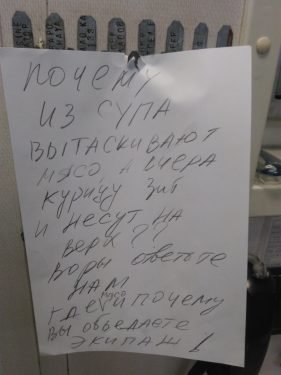 ПОЧЕМУ
ИЗ СУПА
ВЫТАСКИВАЮТ
МЯСО, А ВЧЕРА
КУРИЦУ
И НЕСУТ НА
ВЕРХ??
ВОРЫ ОТВЕТЬТЕ
НАМ
МЯСО
ГДЕ И ПОЧЕМУ
ВЫ ОБЪЕДАЕТЕ
ЭКИПАЖ!